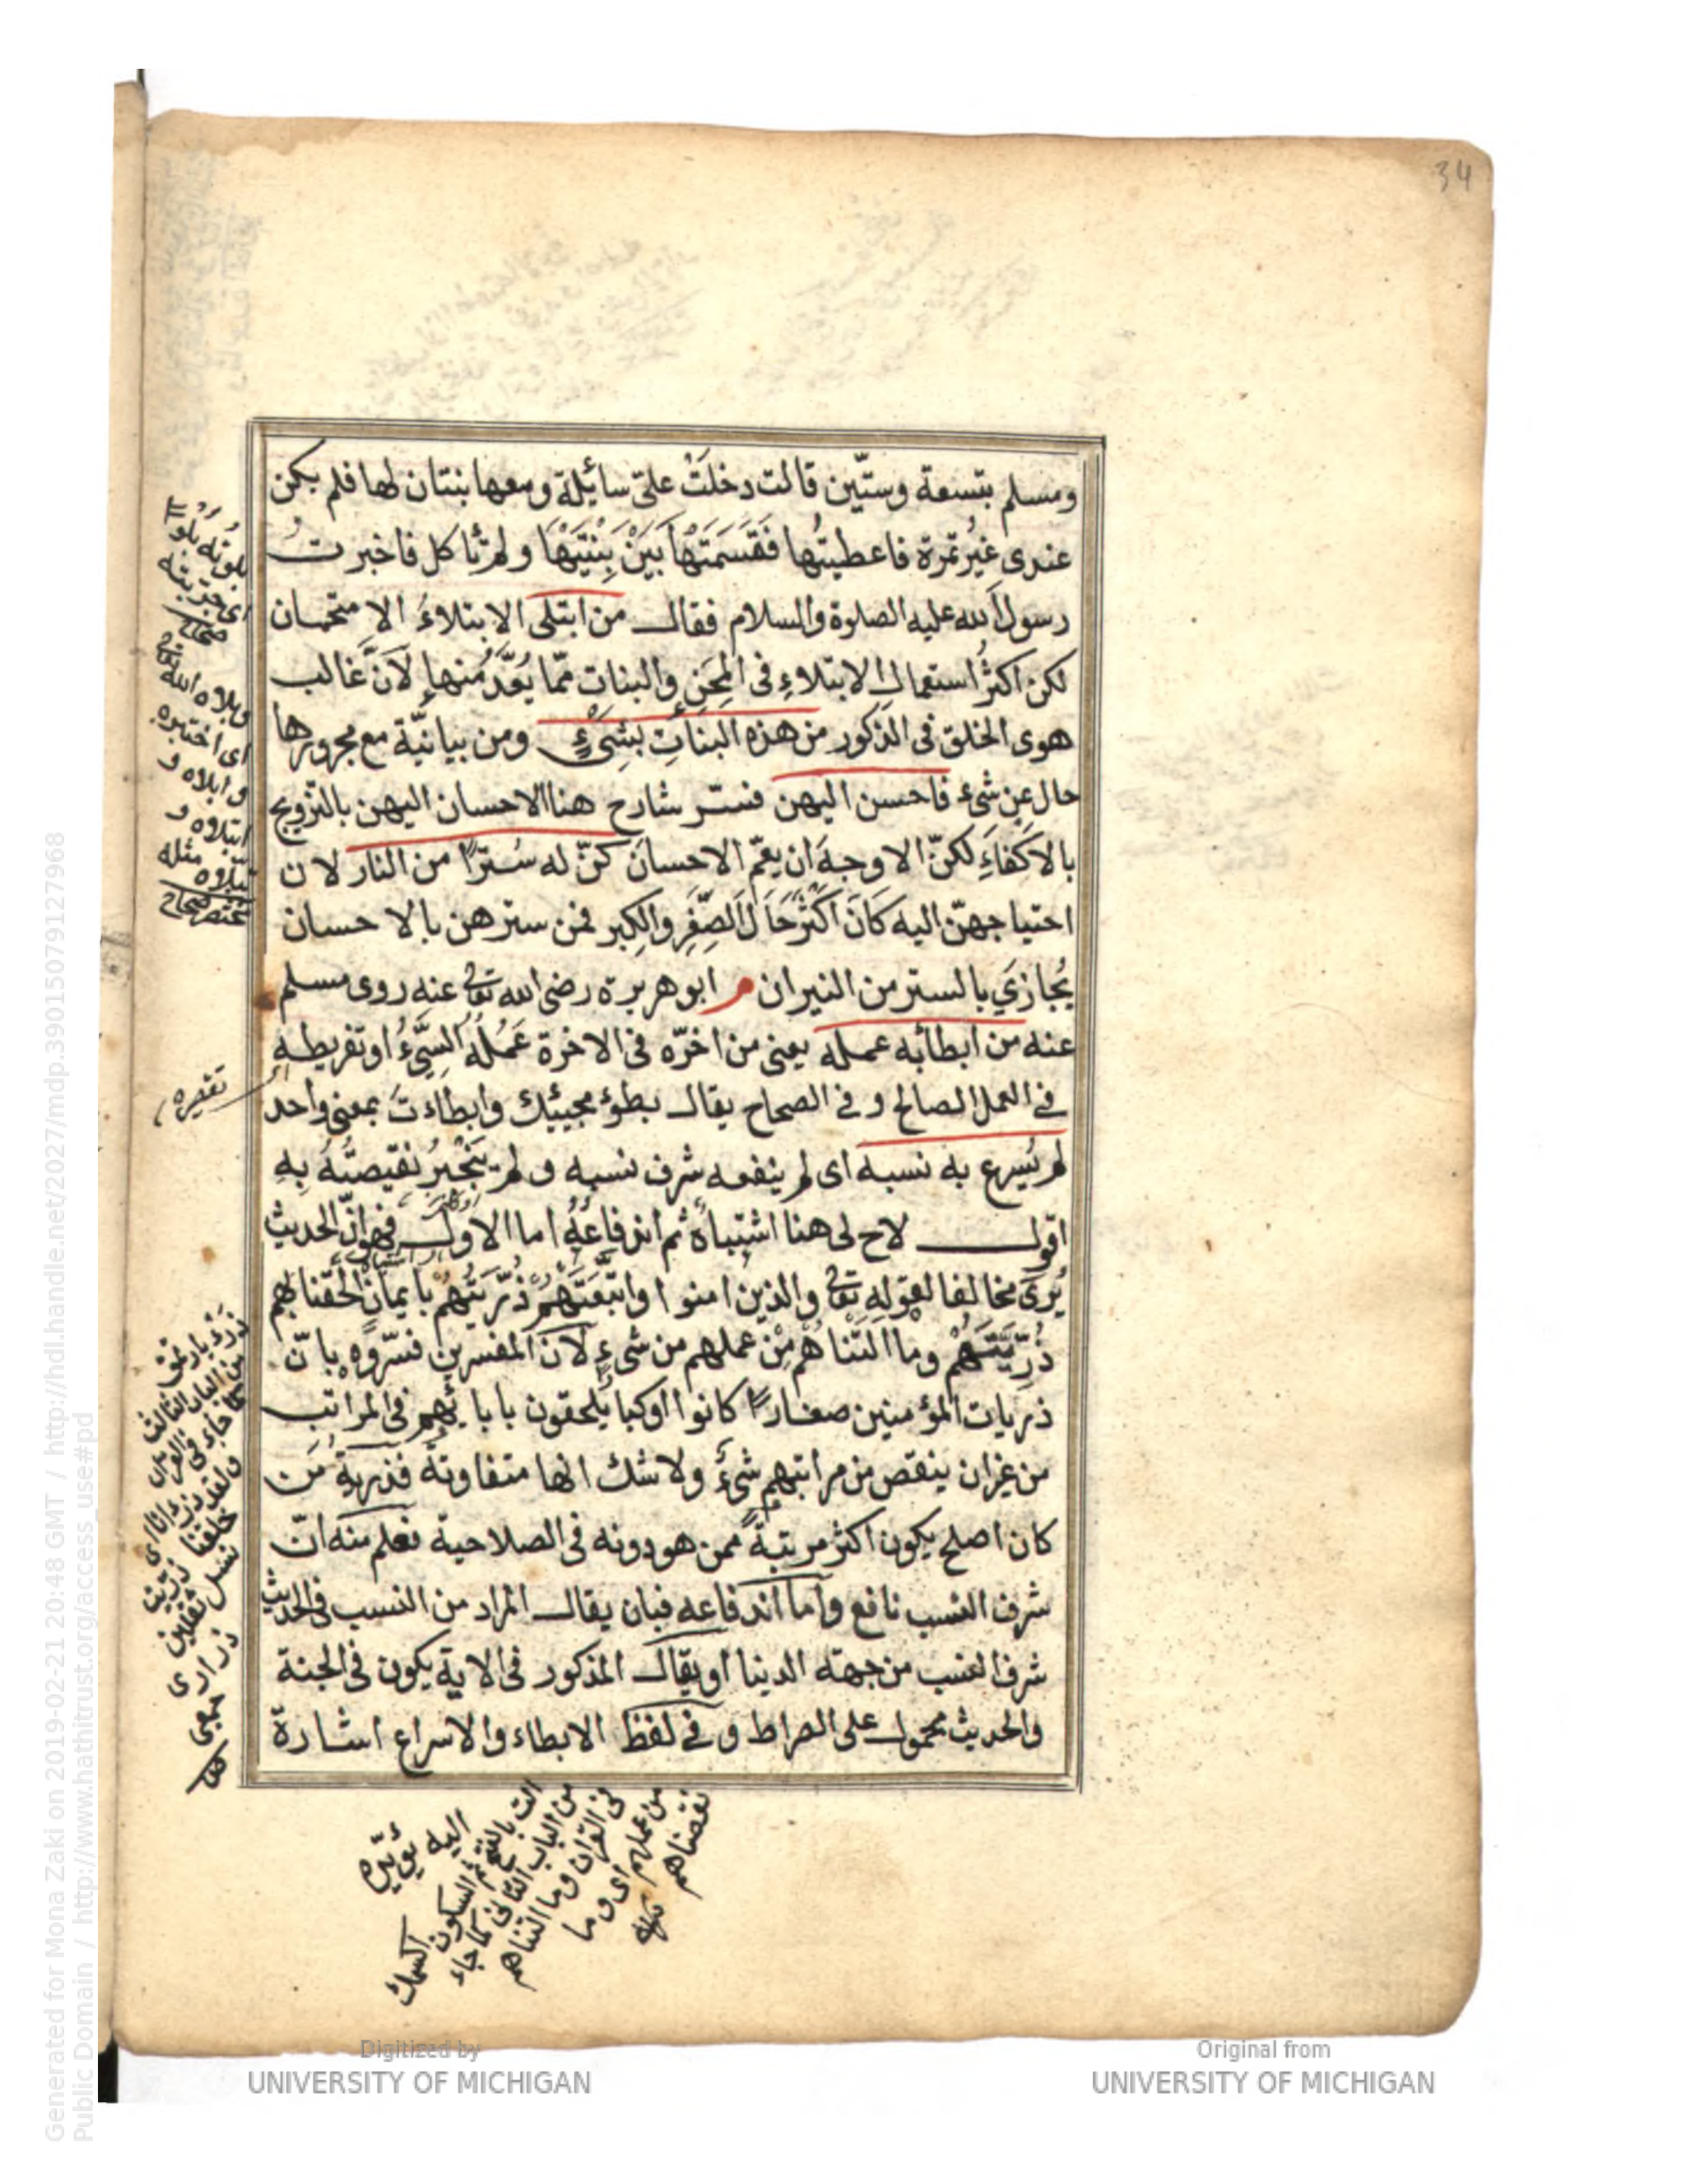 34
ومسلم بتسعة وستّين قالت دخلَتْ علىّ سائلة ومعها بنتان لها فلم يكن
عندى غيرُ تمرة فاعطيتُها فَقَسَمَتْهَا بَيْنَ بِنْتَيْهَا ولم تأكل فاخبرتُ
رسول الله عليه الصلوة والسلام فقال من ابتلى الابتلاءُ الامتحان
لكن اكثرُ استعمال الابتلاءِ فى المِحَنِ والبنات ممّا يُعَدُّ منها لاَنَّ غالب
هوى الخلق فى الذكور من هذه البناتِ بشىءٍ ومن بيانيّة مع مجرورها
حال عن شىء فاحسن اليهن فسّر شارح هنا الاحسان اليهن بالتزويج
بالاكفاءِ لكنّ الاوجه ان يعمّ الاحسان كنّ له سترًا من النار لان
احتياجهنّ اليه كانَ اكثرَ حَالَ الصِّغَرِ والكِبر فمن سترهن بالاحسان
يُجازَى بالستر من النيران م ابو هريرة رضى الله تعالى عنه روى مسلم
عنه من ابطأ به عمله يعنى من اخّره فى الاخرة عَمَلُهُ السَّيِّءُ او تفريطه
فى العمل الصالح و فى الصحاح يقال بطؤ مجيئك وابطاءت بمعنى واحد
لم يُسرع به نسبه اى لم ينفعه شرف نسبه و لم يَنْجَبِرْ نقيصتُهُ بِهِ
اقول لاح لى هنا اشتباهٌ ثم اندفاعُهُ اما الاول فهو انّ الحديث
يُرَى مخالفا لقوله تعالى والذين امنوا واتَّبَعَتْهُمْ ذُرِّيَّتُهُمْ بايمانٍ الحَقنا بهم
ذُرِّيَّتَهُمْ وما التناهُم مِنْ عملهم من شىءٍ لانّ المفسرين فسّروه بانّ
ذريات المؤمنين صغارًا كانوا او كبا يَلحقون بابايهم فى المراتب
من غير ان ينقص من مراتبهم شىءٌ ولا شك انها متفاوتة فذرية مَن
كان اصلح يكون اكثر مرتبةً ممن هو دونه فى الصلاحية فعلم منه انّ
شرف النسب نافع وامّا اندفاعه فبان يقال المراد من النسب فى الحديث
شرف النسب من جهة الدنيا او يقال المذكور فى الاية يكون فى الجنة
والحديث محمول على الصراط و فى لفظ الابطاء والاسراع اشارة
اى جربته
صحاح
وبلاه الله
اى اختبره
و ابلاه و
ابتلاه و
مثله
مختصر صحاح
تقصيره
من الباب الثالث
كما جاء فى القران
ولقد ذرءنا اى
خلقنا
نسل ثقلين
ذرارى
جمعى
من الباب الثانى كما جاء
فى القران وما التناهم
من عملهم اى وما
نقصناهم
Generated for Mona Zaki on 2019-02-21 20:48 GMT / http://hdl.handle.net/2027/mdp.39015079127968
Public Domain / http://www.hathitrust.org/access_use#pd
Digitized by
UNIVERSITY OF MICHIGAN
Original from
UNIVERSITY OF MICHIGAN